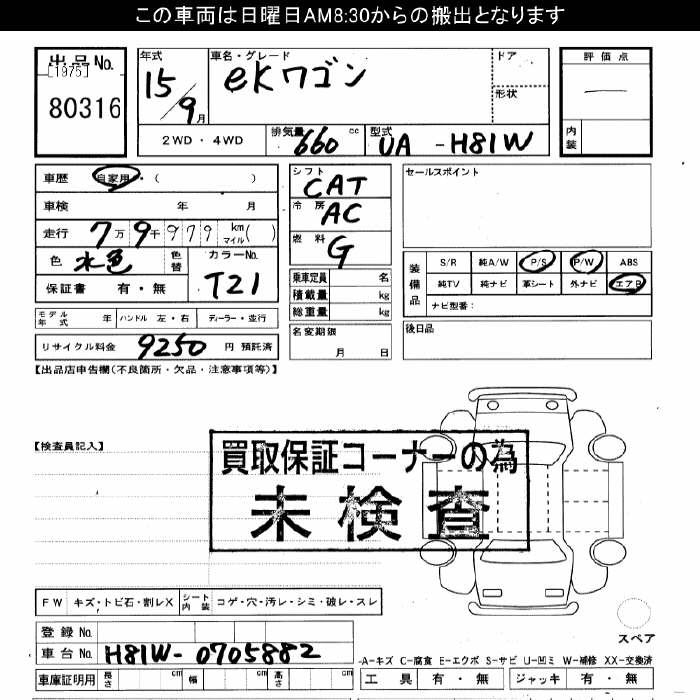 この車両は日曜日AM8:30からの搬出となります
出品No.
[1975]
80316
年式 15/9月
車名・グレード eKワゴン
ドア
形状
評価点
内装
2WD・4WD 排気量 660 cc 型式 UA -H81W
車歴 自家用・( )
車検 年 月
走行 7万9千979 km マイル( )
色 水色 色替 カラーNo. T21
保証書 有・無
モデル年式 年 ハンドル 左・右 ディーラー・並行
リサイクル料金 9250 円 預託済
シフト CAT
冷房 AC
燃料 G
乗車定員 名
積載量 kg
総重量 kg
名変期限 月 日
セールスポイント
装備品
S/R 純A/W P/S P/W ABS
純TV 純ナビ 革シート 外ナビ エアB
ナビ型番:
後日品
【出品店申告欄(不良箇所・欠品・注意事項等)】
【検査員記入】
買取保証コーナーの為
未検査
FW キズ・トビ石・割レX シート内装 コゲ・穴・汚レ・シミ・破レ・スレ
登録No.
車台No. H81W-0705882
車庫証明用 長さ cm 幅 cm 高さ cm
スペア
-A-キズ C-腐食 E-エクボ S-サビ U-凹ミ W-補修 XX-交換済
工具 有・無 ジャッキ 有・無